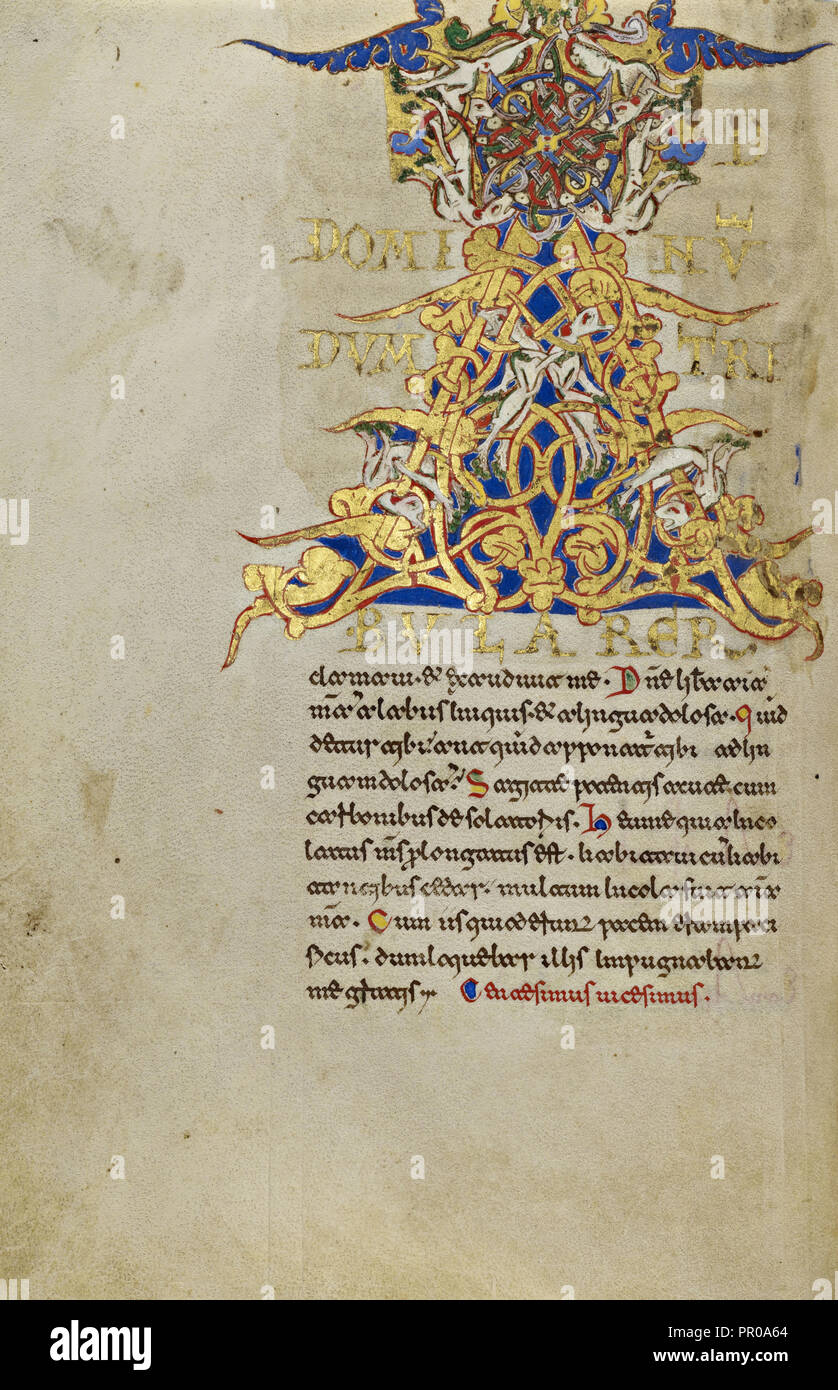 D
DOMI NV̄
DVM TRI
BVLARER
clamaui · & exaudiuit me · Dn̄e libera anima
mea a labiis iniquis · & a lingua dolosa · Quid
detur tibi aut quid apponat tibi ad lin
guam dolosa · Sagitte potentis acute cum
carbonibus desolatoriis · Heu me quia inco
latus m̄s prolongatus est · habitaui cū habi
tantibus cedar · multum incola fuit anima
mea · Cum iis qui oderunt pacem eram paci
ficus · dum loquebar illis impugnabant
me gratis · Centesimus uicesimus ·
a alamy stock photo
alamy
Image ID: PR0A64
www.alamy.com